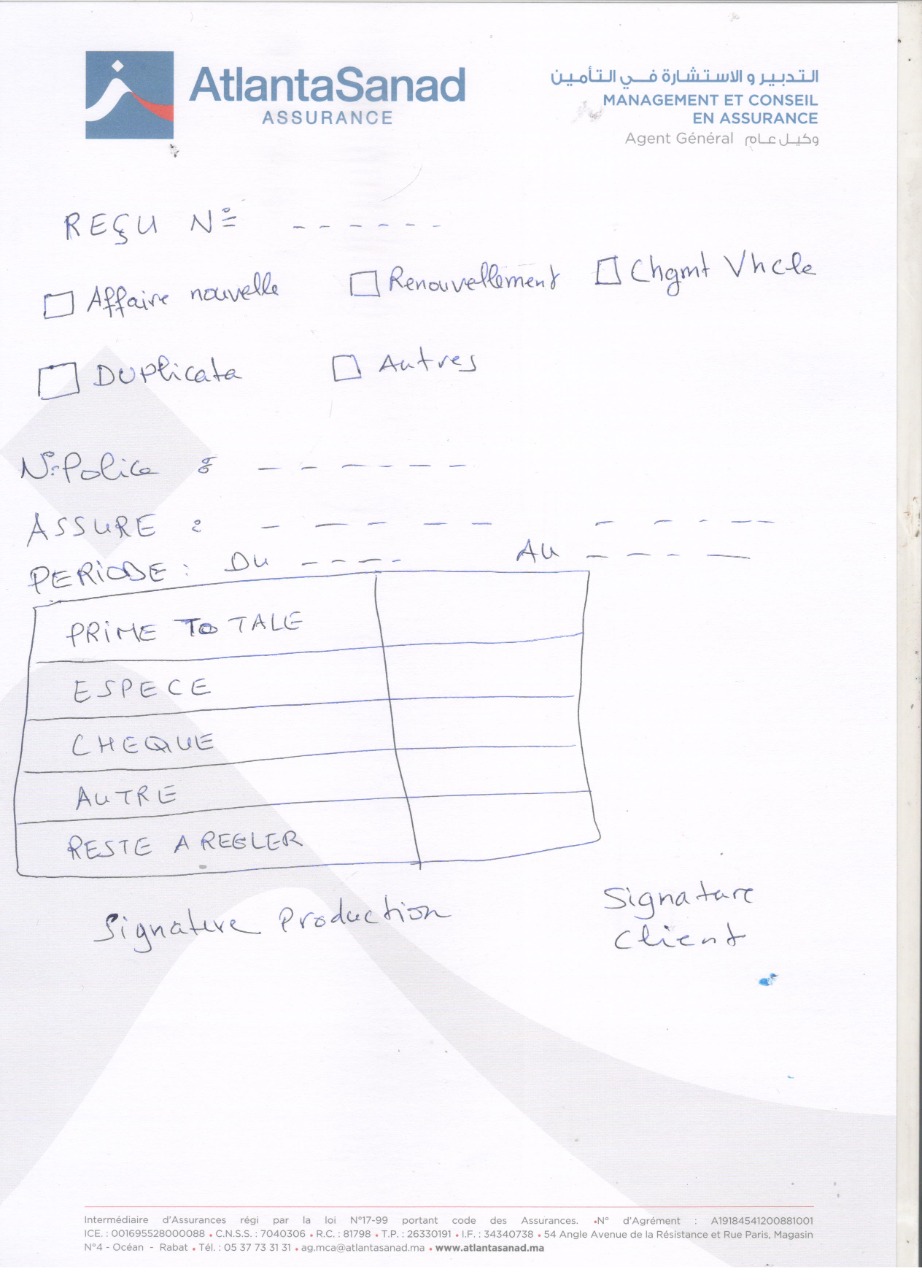 AtlantaSanad
ASSURANCE
التدبير و الاستشارة في التأمين
MANAGEMENT ET CONSEIL
EN ASSURANCE
Agent Général وكيل عام
REÇU N° ------
Affaire nouvelle Renouvellement Chgmt Vhcle
Duplicata Autres
N° Police : ------
ASSURE : ----- ----
PERIODE : DU ---- AU ----
PRIME TOTALE
ESPECE
CHEQUE
AUTRE
RESTE A REGLER
Signature Production Signature
Client
Intermédiaire d'Assurances régi par la loi N°17-99 portant code des Assurances. •N° d'Agrément : A19184541200881001
ICE. : 001695528000088 • C.N.S.S. : 7040306 • R.C. : 81798 • T.P. : 26330191 • I.F. : 34340738 • 54 Angle Avenue de la Résistance et Rue Paris, Magasin
N°4 - Océan - Rabat • Tél. : 05 37 73 31 31 • ag.mca@atlantasanad.ma • www.atlantasanad.ma